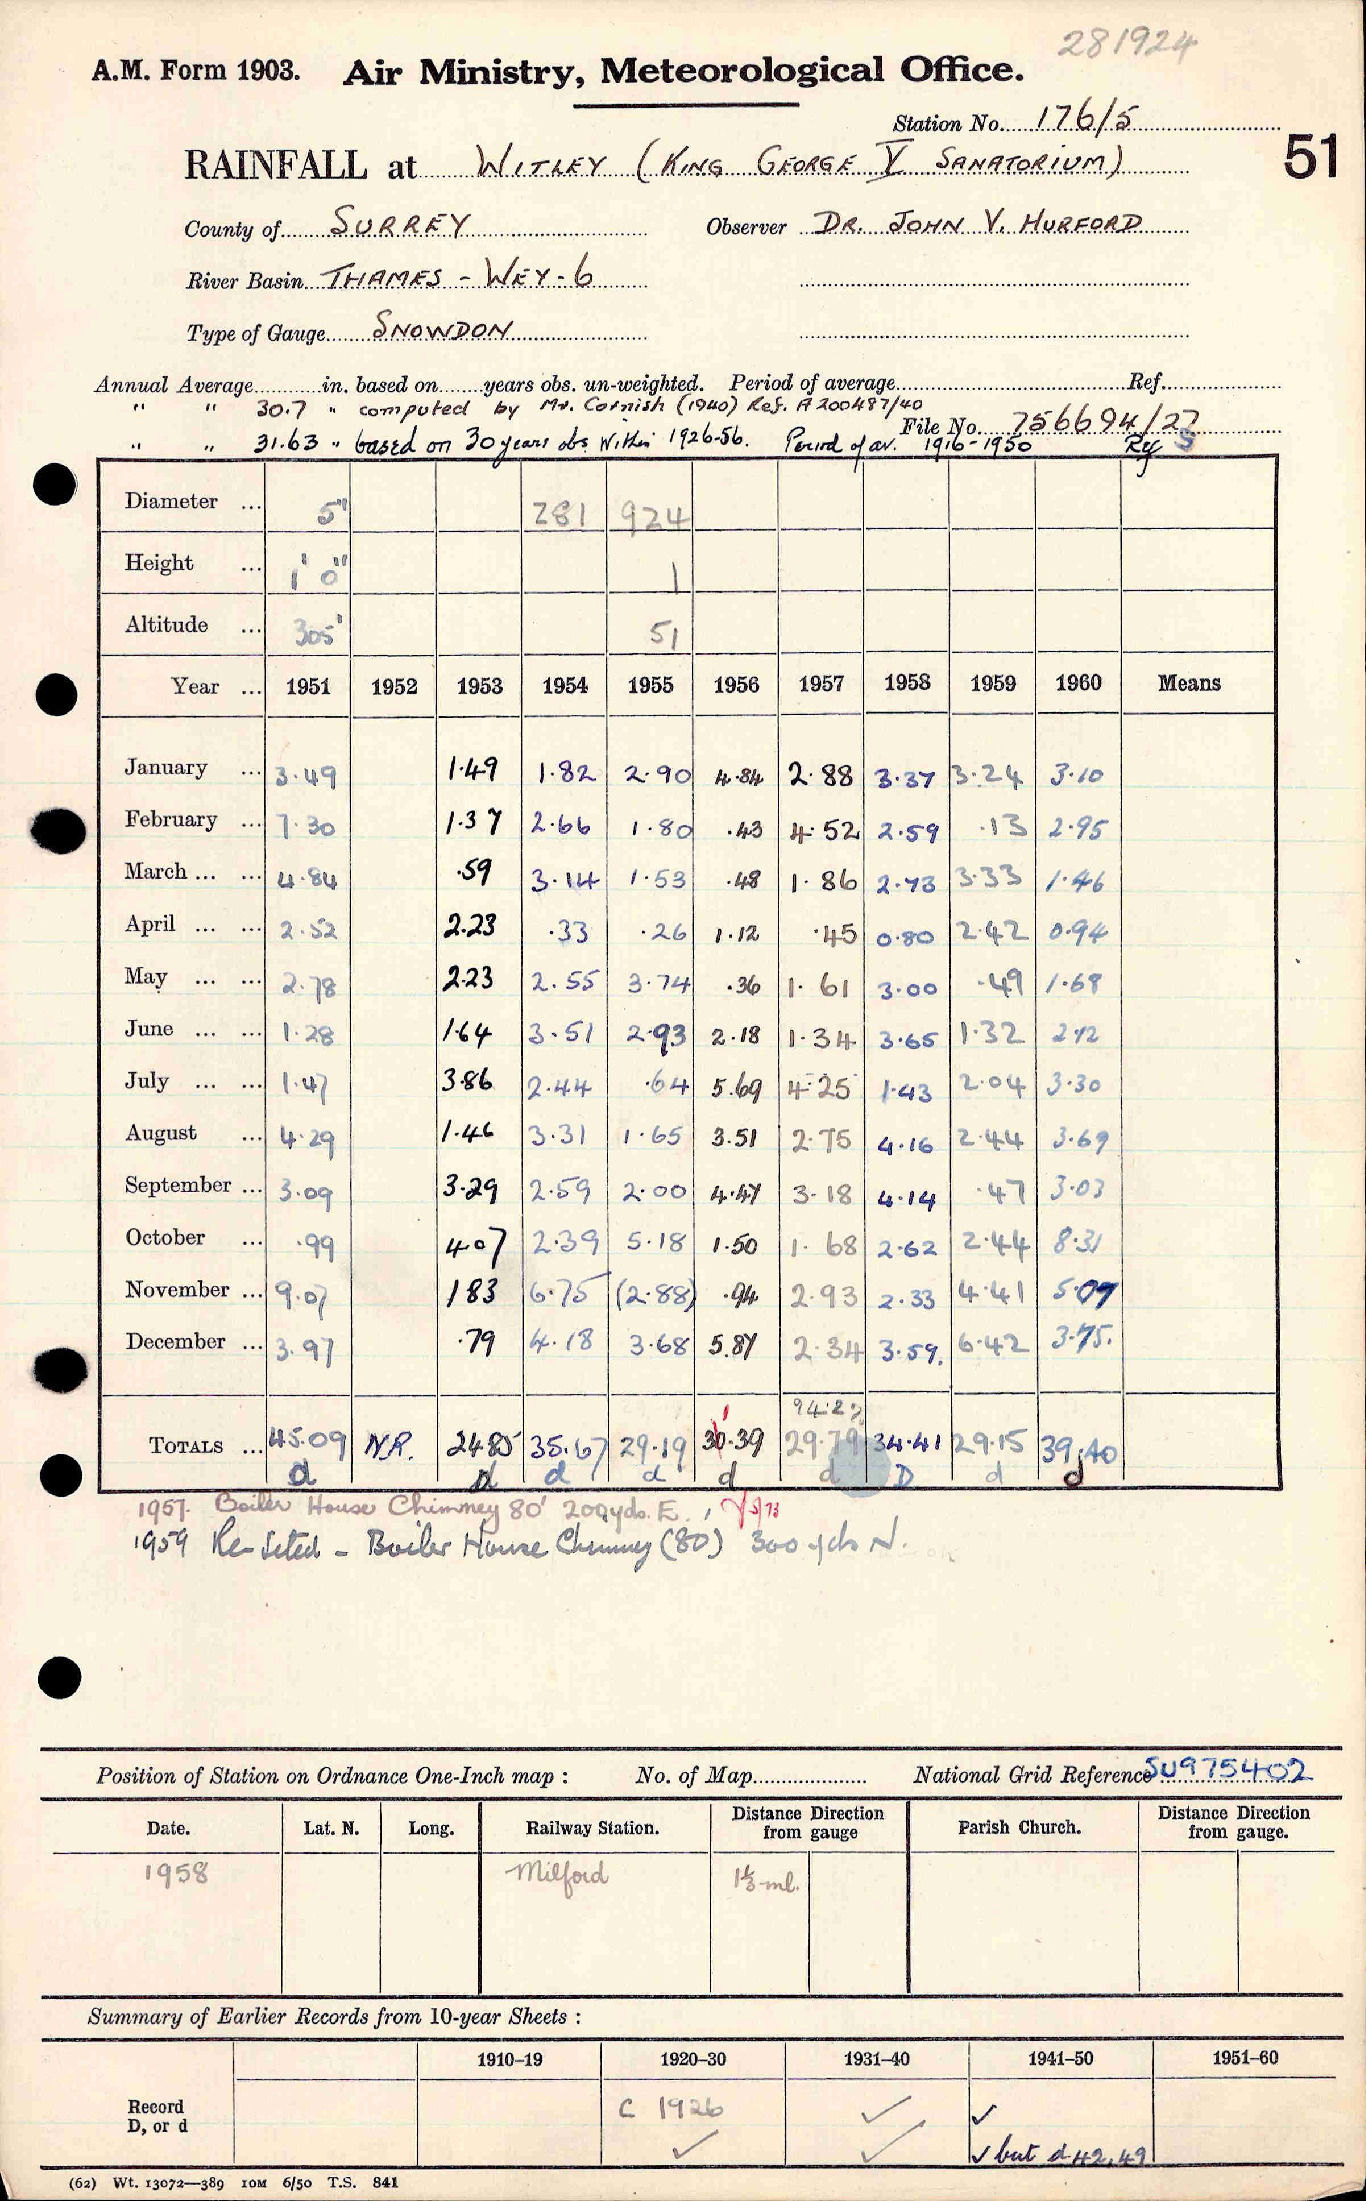 281924
A.M. Form 1903. Air Ministry, Meteorological Office.
Station No. 176/5
51
RAINFALL at WITLEY (KING GEORGE V SANATORIUM)
County of SURREY Observer DR. JOHN V. HURFORD
River Basin THAMES - WEY - 6
Type of Gauge SNOWDON
Annual Average in. based on years obs. un-weighted. Period of average Ref.
" " 30.7 " computed by Mr. Cornish (1940) Ref. A200487/40
File No. 756694/27
" " 31.63 " based on 30 years obs within 1926-56. Period of av. 1916-1950 Ref S
Diameter ... 5" 281 924
Height ... 1' 0" 1
Altitude ... 305' 51
Year ... 1951 1952 1953 1954 1955 1956 1957 1958 1959 1960 Means
January ... 3.49 1.49 1.82 2.90 4.84 2.88 3.37 3.24 3.10
February ... 7.30 1.37 2.66 1.80 .43 4.52 2.59 .13 2.95
March ... ... 4.84 .59 3.14 1.53 .48 1.86 2.73 3.33 1.46
April ... ... 2.52 2.23 .33 .26 1.12 .45 0.80 2.42 0.94
May ... ... 2.78 2.23 2.55 3.74 .36 1.61 3.00 .49 1.68
June ... ... 1.28 1.64 3.51 2.93 2.18 1.34 3.65 1.32 2.12
July ... ... 1.47 3.86 2.44 .64 5.69 4.25 1.43 2.04 3.30
August ... 4.29 1.46 3.31 1.65 3.51 2.75 4.16 2.44 3.69
September ... 3.09 3.29 2.59 2.00 4.47 3.18 4.14 .47 3.03
October ... .99 4.07 2.39 5.18 1.50 1.68 2.62 2.44 8.31
November ... 9.07 1.83 6.75 (2.88) .94 2.93 2.33 4.41 5.07
December ... 3.97 .79 4.18 3.68 5.87 2.34 3.59. 6.42 3.75.
TOTALS ... 45.09 N.R. 24.85 35.67 29.19 31.39 29.79 34.41 29.15 39.40
d d d d d d D d d
1957. Boiler House Chimney 80' 200yds. E.
1959 Re-sited - Boiler House Chimney (80) 300 yds N.
Position of Station on Ordnance One-Inch map : No. of Map National Grid Reference SU975402
Date. Lat. N. Long. Railway Station. Distance Direction from gauge Parish Church. Distance Direction from gauge.
1958 Milford 1⅓ ml.
Summary of Earlier Records from 10-year Sheets :
1910–19 1920–30 1931–40 1941–50 1951–60
Record D, or d C 1926 ✓ ✓
✓ ✓ ✓ but d 42, 49
(62) Wt. 13072—389 10M 6/50 T.S. 841